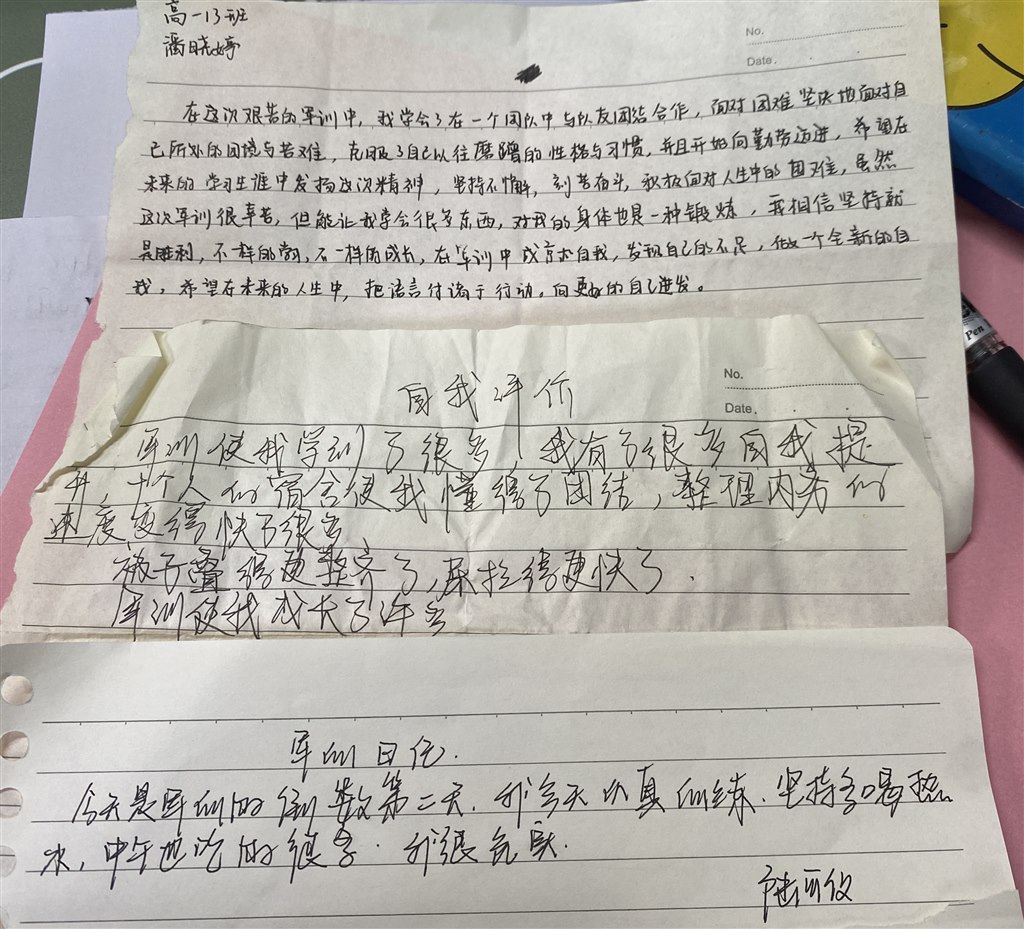 高一13班
潘晓婷
No.
Date.
在这次艰苦的军训中，我学会了在一个团队中与队友团结合作，面对困难坚决地面对自
己所处的困境与苦难，克服了自己以往磨蹭的性格与习惯，并且开始向勤劳迈进，希望在
未来的学习生涯中发扬这次精神，坚持不懈，刻苦奋斗，积极面对人生中的困难，虽然
这次军训很辛苦，但能让我学会很多东西，对我的身体也是一种锻炼，我相信坚持就
是胜利，不一样的成长，在军训中成自我，发现自己的不足，做一个全新的自
我，希望在未来的人生中，把语言付诸于行动。向更好的自己进发。
Pen
No.
Date.
自我评价
军训使我学到了很多，我有了很多自我提
升，十个人的宿舍使我懂得了团结，整理内务的
速度变得快了很多
被子叠得更整齐了，尿拉得更快了.
军训使我成长了许多
军训日记.
今天是军训的倒数第二天.我今天认真训练.坚持多喝热
水，中午也吃的很多.我很充实.